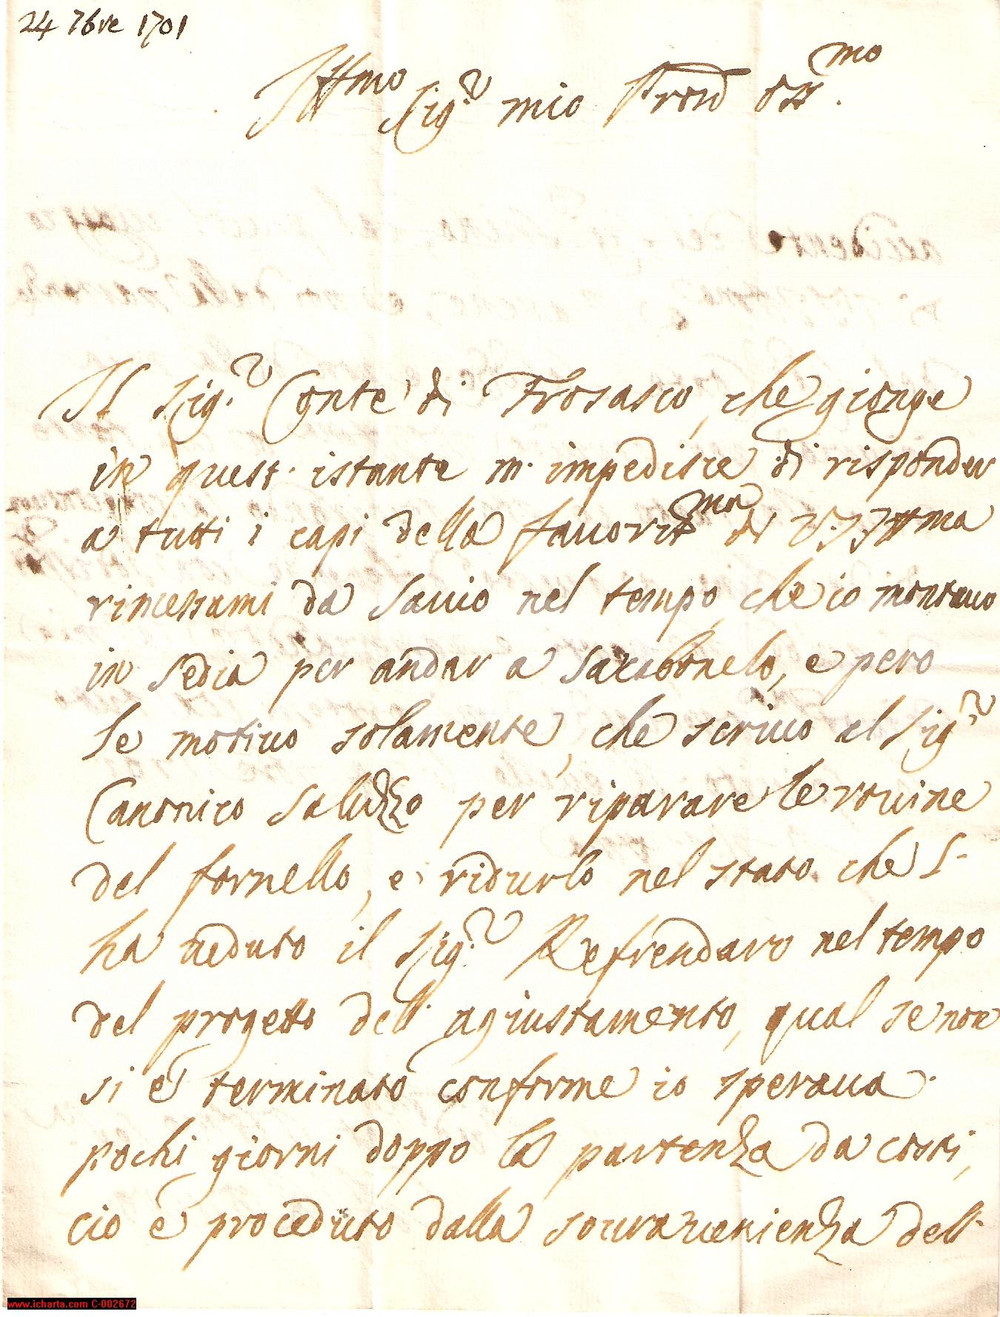 24 7bre 1701
Ill.mo Sig.r mio Pron Oss.mo
Il Sig.r Conte di Frosasco, che gionge
in quest' istante m' impedisce di risponder
a tutti i capi della favorit.ma di V.S. Ill.ma
rimessami da Savio nel tempo, che io montavo
in sedia per andar a Sarabonelo, e però
Le motivo solamente, che scrivo al Sig.r
Canonico Saluzzo per riparare le rovine
del fornello, e ridurlo nel stato che l'
ha veduto il Sig.r Refrendaro nel tempo
del progetto dell' agiustamento, qual se non
si è terminato conforme io sperava
pochi giorni doppo la partenza da costì,
ciò è proceduto dalla souravenienza dell'
www.icharta.com C-002672